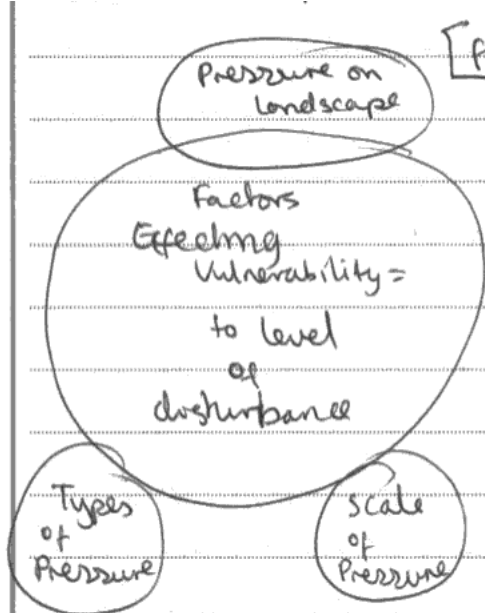 Pressure on
Landscape
Factors
Effecting
Vulnerability =
to level
of
disturbance
Types
of
Pressure
Scale
of
Pressure